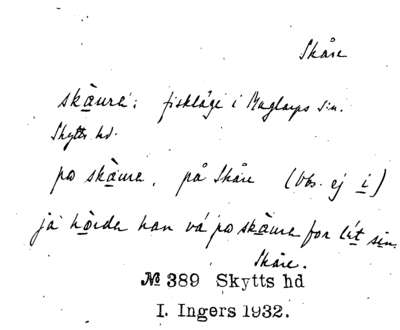 Skåre
skàura: fiskläge i Maglarps sn.
Skytts hd.
po skàura, på Skåre (obs. ej i)
ja hòida han vá po skàura for lít sin.
Skåre.
№ 389 Skytts hd
I. Ingers 1932.